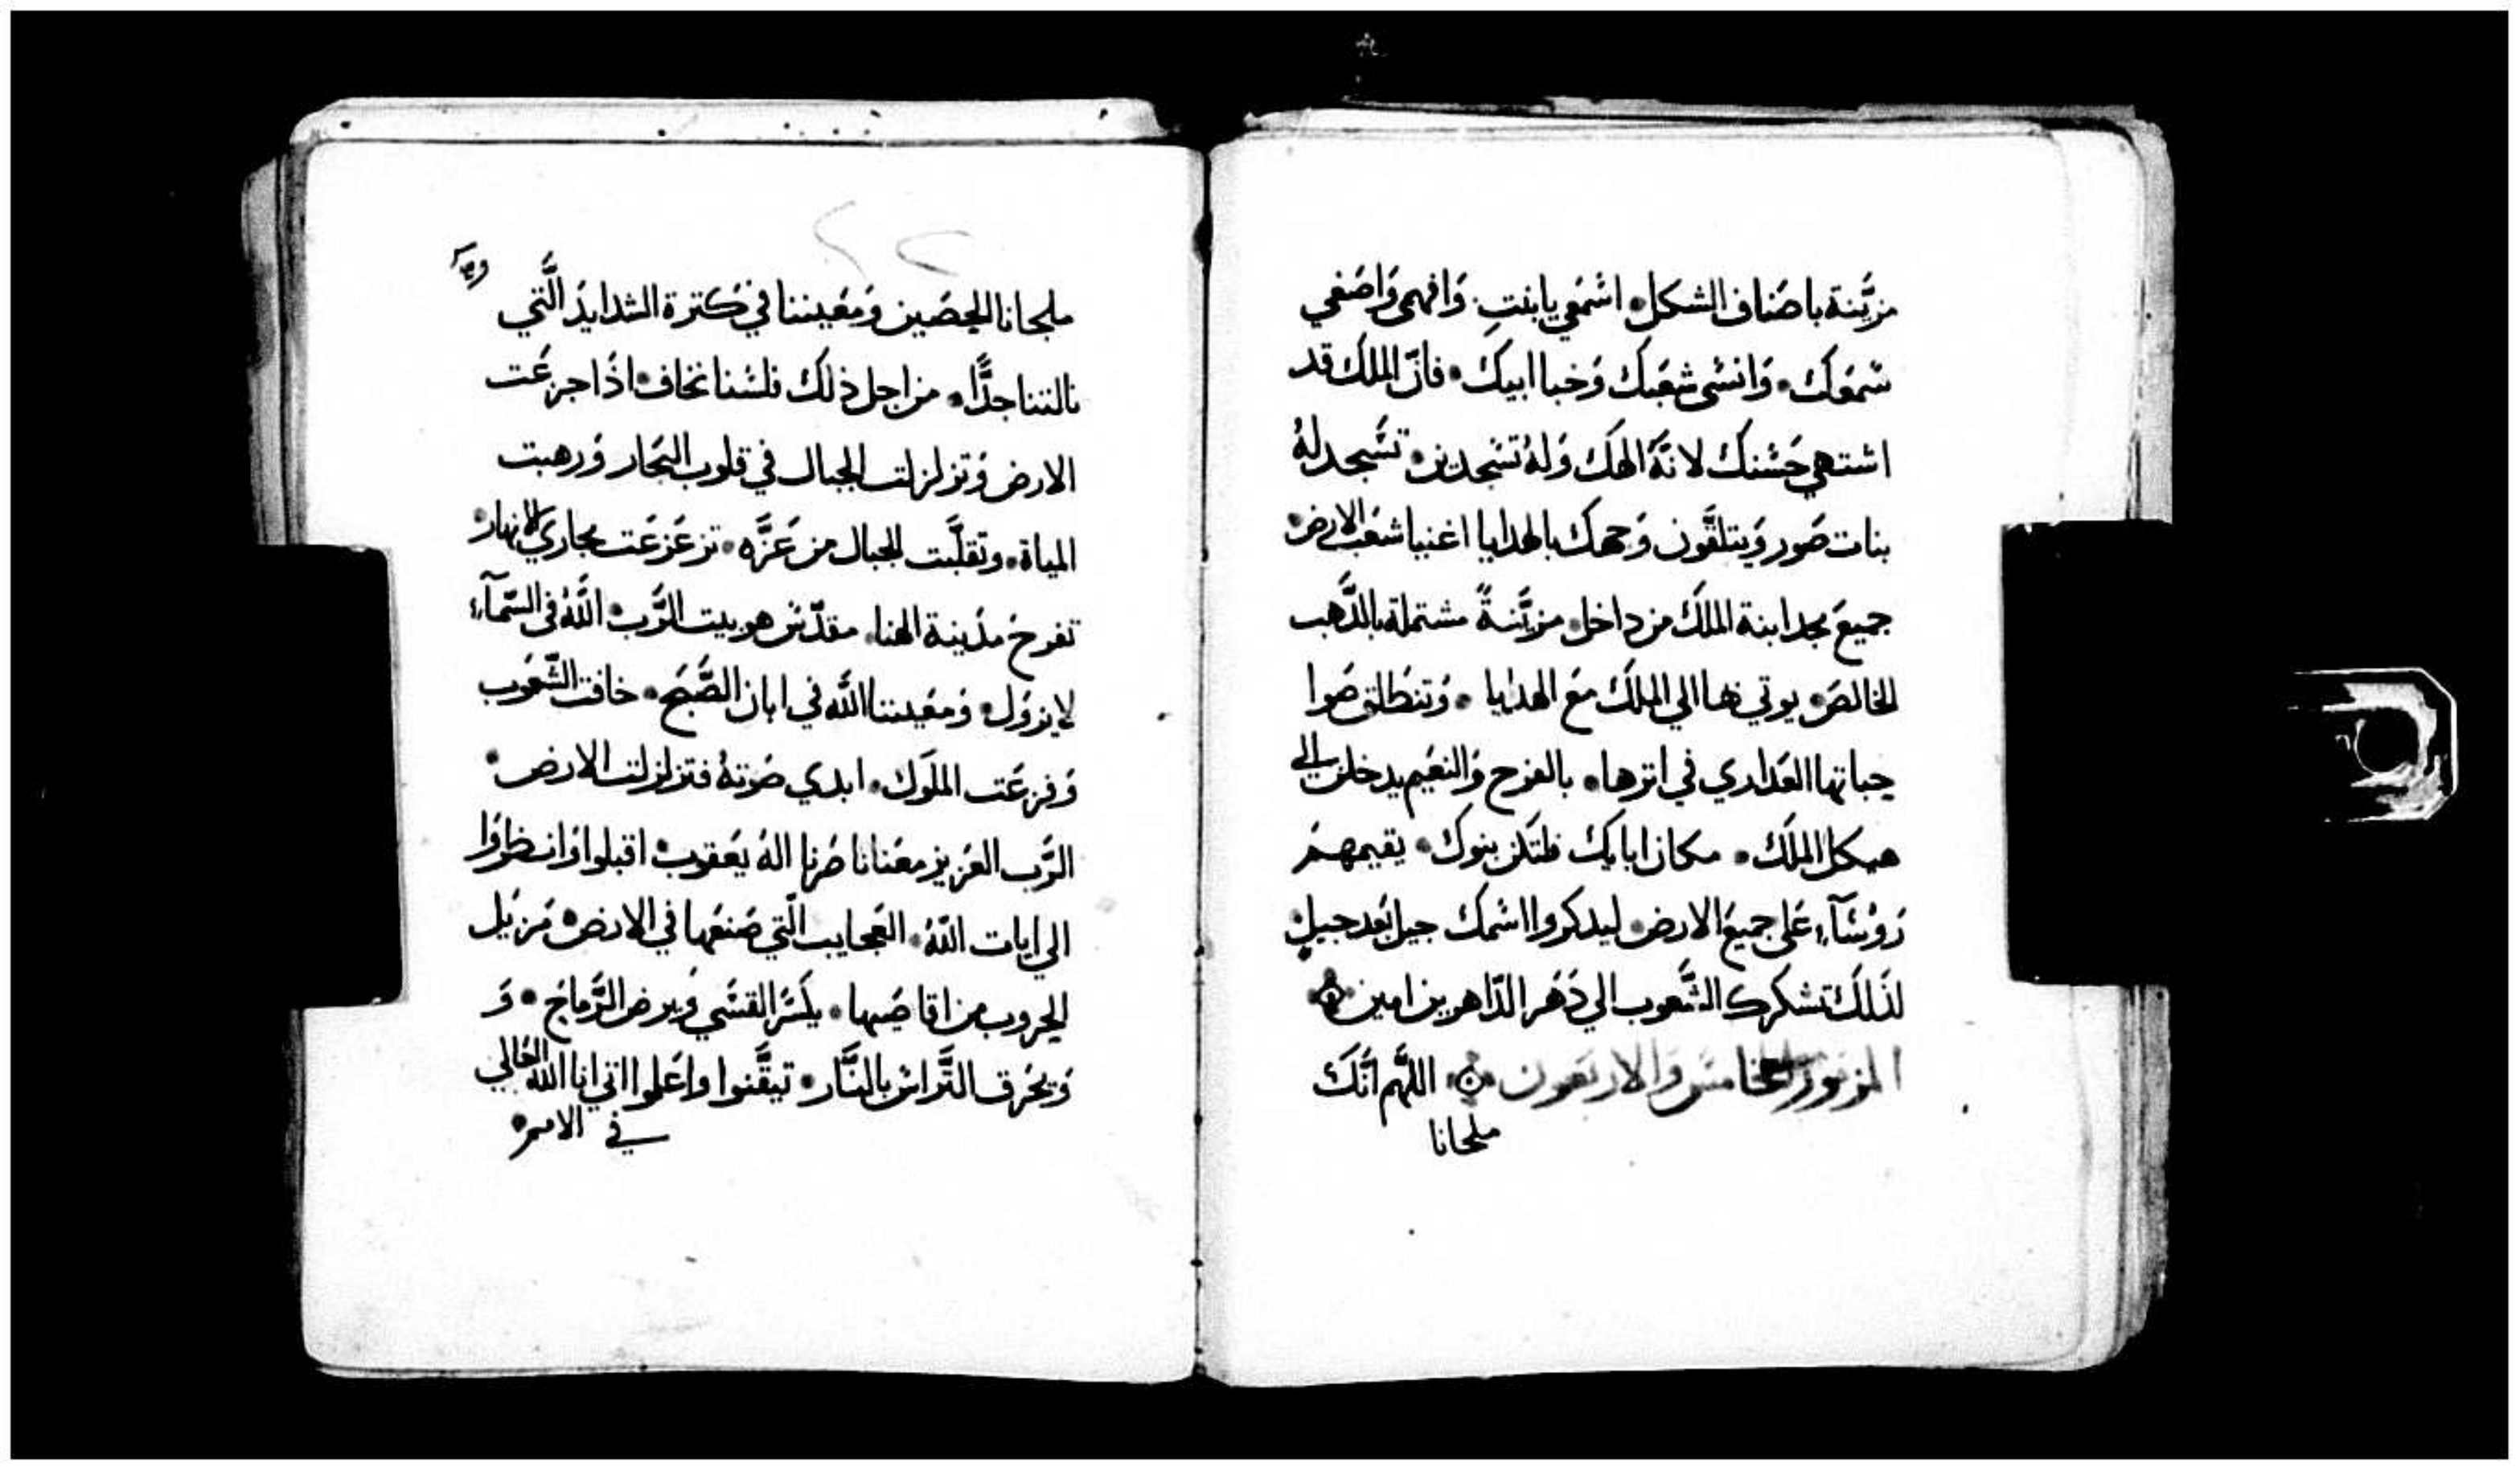 مزيَّنة باصَناف الشكل. اسْمَعي يا بنتِ. وَافهمي وَاصَغي
سْمعَك. وَانسْي شعَبَك وَخبا ابيك. فانّ الملك قد
اشتهي حَسْنك لانهَّ الهَك وَلهُ تسْجدين. تسَّجد لهُ
بنات صَور وَيتلقَّون وَجهك بالهدايا اغنيا شعَب الارض
جميعَ مجد ابنة الملَك من داخل. مزيَّنةً مشتملة بالدَّهب
الخالصَ. يوتي بها الي الملَك معَ الهدايا. وَتنطلق صَوا
حباتها العَداري في اترها. بالفرَح وَالنعَيم يدخلن الي
هيكل الملَك. مكان ابايكَ فلتَكن بنوك. يقيمهمَ
رَوسْآء علي جميعَ الارض. ليدكروا اسْمك جيل بَعد جيلٍ
لذلَك تشكرك الشَّعوب الي دَهَر الدّاهرين امين
المزمور الخامسَ والاربعَون اللهَّم انَّكَ
ملجانا
ملجانا الحصَين وَمعَيننا في كَترة الشدايدَ الَّتي
نالتنا جدًّا. من اجل ذلَك فلسْنا نخاف. اذَا جزعَت
الارض وَتزلزلت الجبال في قلوب البَحار وَرهبت
المياة. وتقلَّبت الجبال من عَزَّه. تزعَزعَت مجاري الانهار
تفرحَ مدَينة الهنا. مقدّسَ هو بيت الرَّب. اللَّهُ في السّمآء
لا يزوَل. وَمعَيننا اللَّه في ابان الصَّبَح. خافت الشّعَوب
وَفزعَت الملَوك. ابدي صَوتهُ فتزلزلت الارض.
الرَّب العَزيز معَنا ناصَرنا الهُ يعَقوب. اقبلوا وَانظروَا
الي ايات اللّهُ. العَجايب الّتي صَنعَها في الارض. مَزيَل
الحروب من اقاصَيها. يكَسَّر القسَّي وَيرض الرَّماحَ. وَ
وَيحَرق التَّراس بالنَّار. تيقَّنوا واعَلموا اني انا اللَّه العَالي
في الامم.